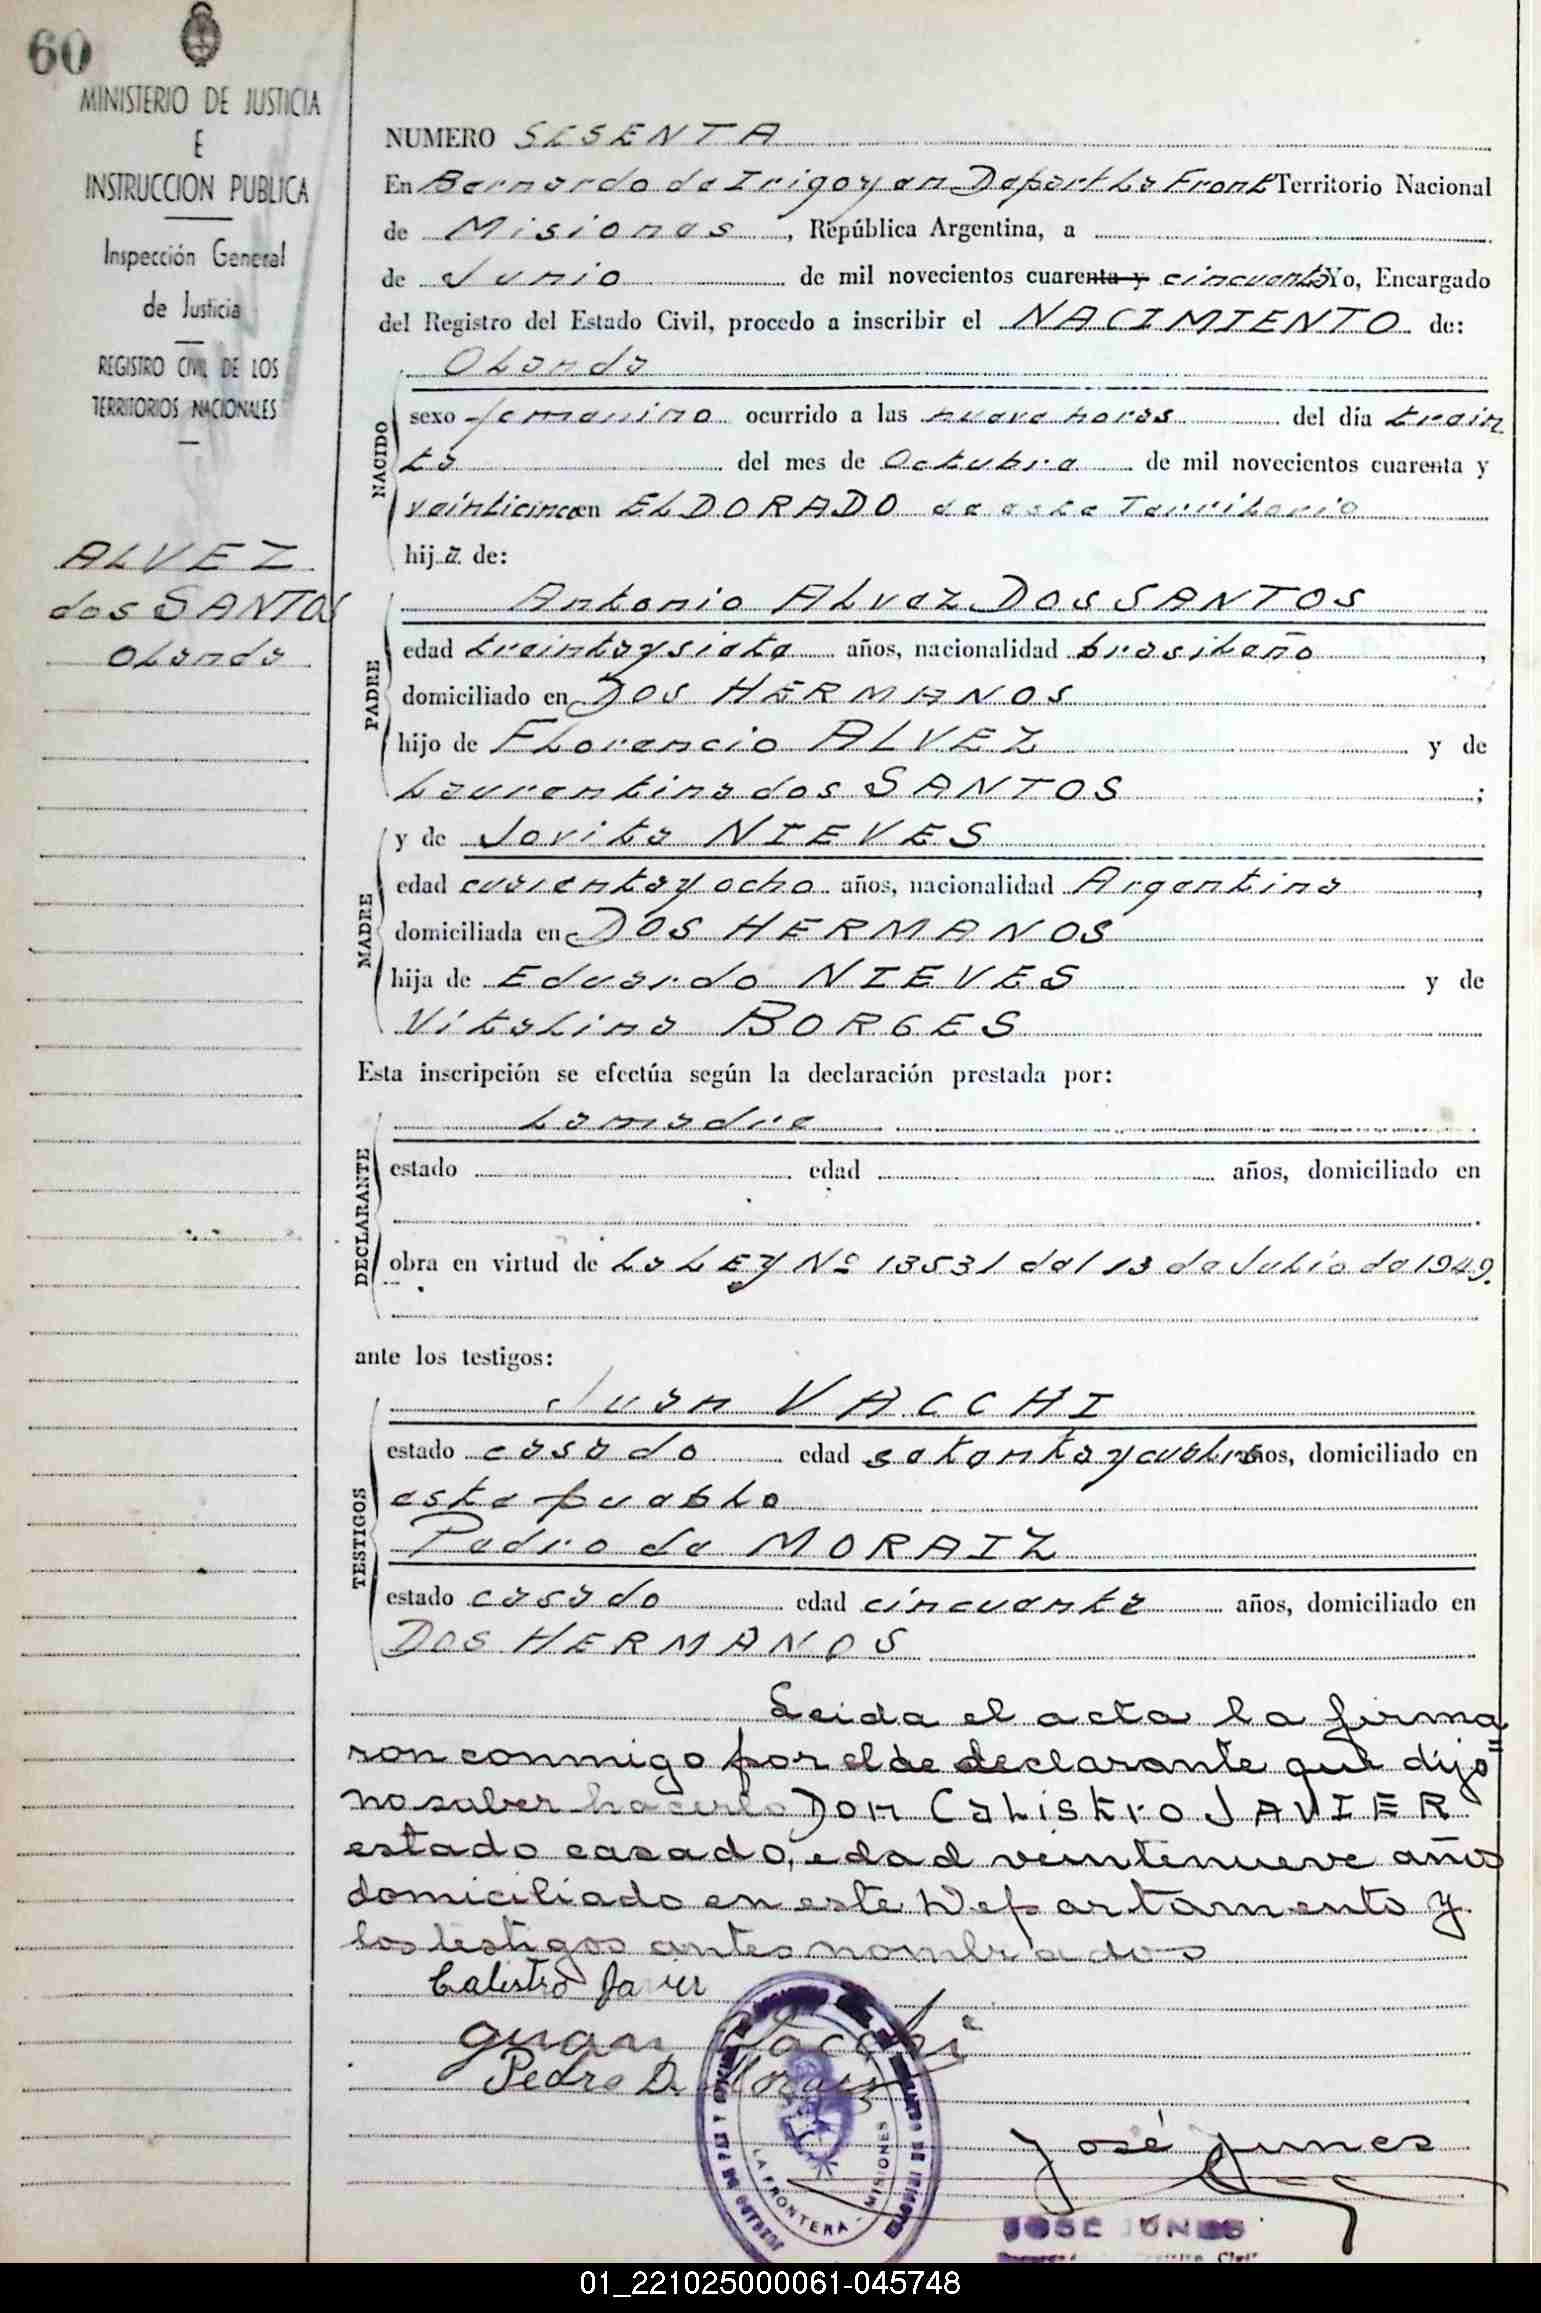 60
MINISTERIO DE JUSTICIA
E
INSTRUCCION PUBLICA
Inspección General
de Justicia
REGISTRO CIVIL DE LOS
TERRITORIOS NACIONALES
ALVEZ
dos SANTOS
Olanda
NUMERO SESENTA
En Bernardo de Irigoyen Depart La Front Territorio Nacional
de Misiones, República Argentina, a
de Junio de mil novecientos cuarenta y cincuenta Yo, Encargado
del Registro del Estado Civil, procedo a inscribir el NACIMIENTO de:
Olanda
NACIDO
sexo femenino ocurrido a las nueve horas del día trein
ta del mes de Octubre de mil novecientos cuarenta y
veinticinco en ELDORADO de este Territorio
hija de:
Antonio ALvez DOS SANTOS
PADRE
edad treinta y siete años, nacionalidad brasileño,
domiciliado en DOS HERMANOS
hijo de Florencio ALVEZ y de
Laurentina dos SANTOS;
y de Jovita NIEVES
MADRE
edad cuarenta y ocho años, nacionalidad Argentina,
domiciliada en DOS HERMANOS
hija de Eduardo NIEVES y de
Vitalina BORGES
Esta inscripción se efectúa según la declaración prestada por:
La madre
DECLARANTE
estado edad años, domiciliado en
obra en virtud de La LEy Nº 13531 del 13 de Julio de 1949.
ante los testigos:
Juan VACCHI
TESTIGOS
estado casado edad setenta y cuatro años, domiciliado en
este pueblo
Pedro de MORAIZ
estado casado edad cincuenta años, domiciliado en
DOS HERMANOS
Leida el acta la firma
ron conmigo por el de declarante que dijo=
no saber hacerlo Don Calistro JAVIER
estado casado, edad veintenueve años
domiciliado en este Departamento y
los testigos antes nombrados
Calistro Javier
Juan Vacchi
Pedro D. Moraiz
LA FRONTERA - MISIONES
José Junes
JOSE JUNES
01_221025000061-045748